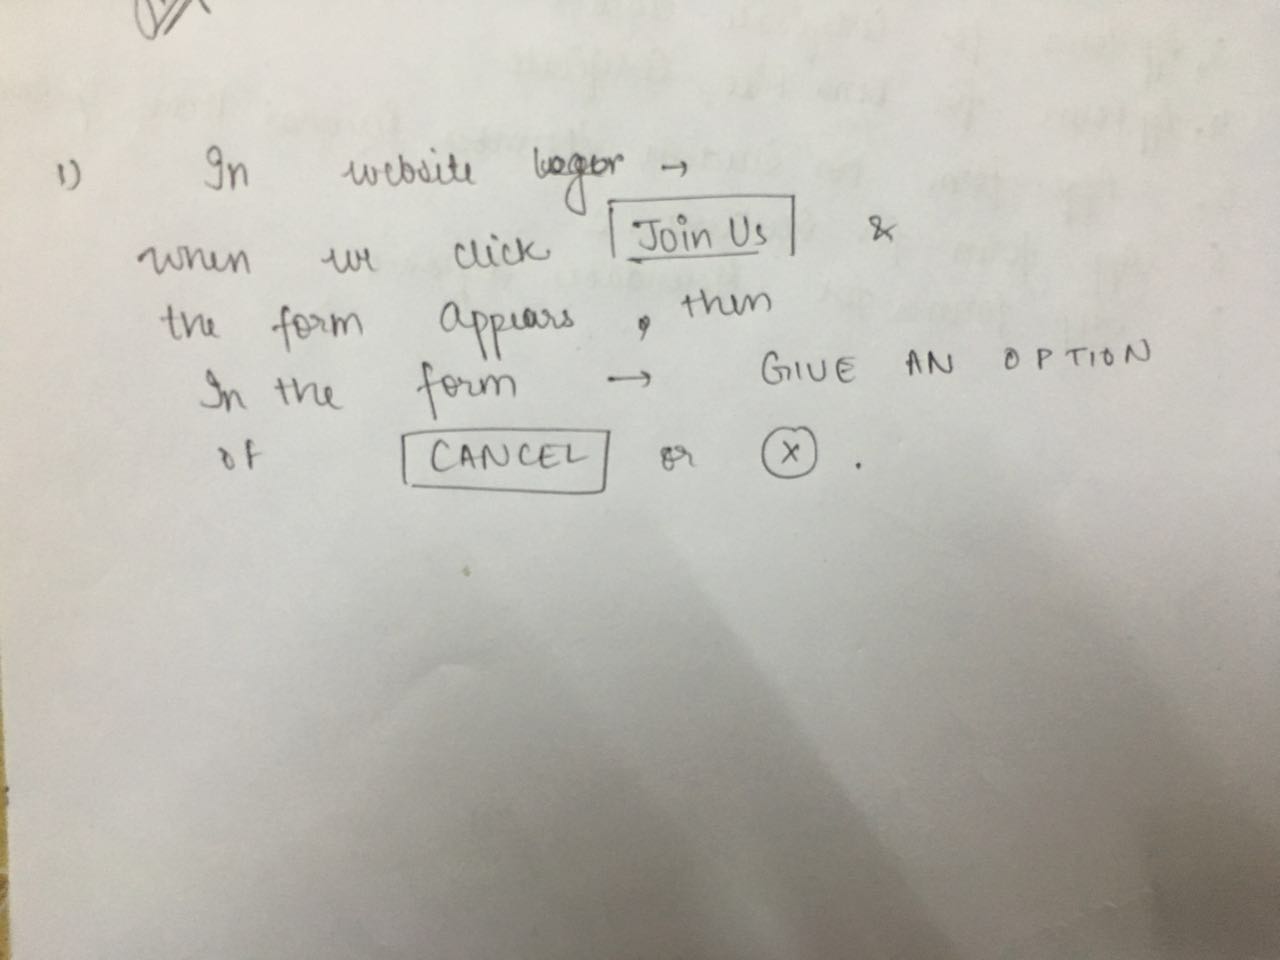 1) In website →
when we click Join Us &
the form appears, then
In the form → GIVE AN OPTION
of CANCEL or X .